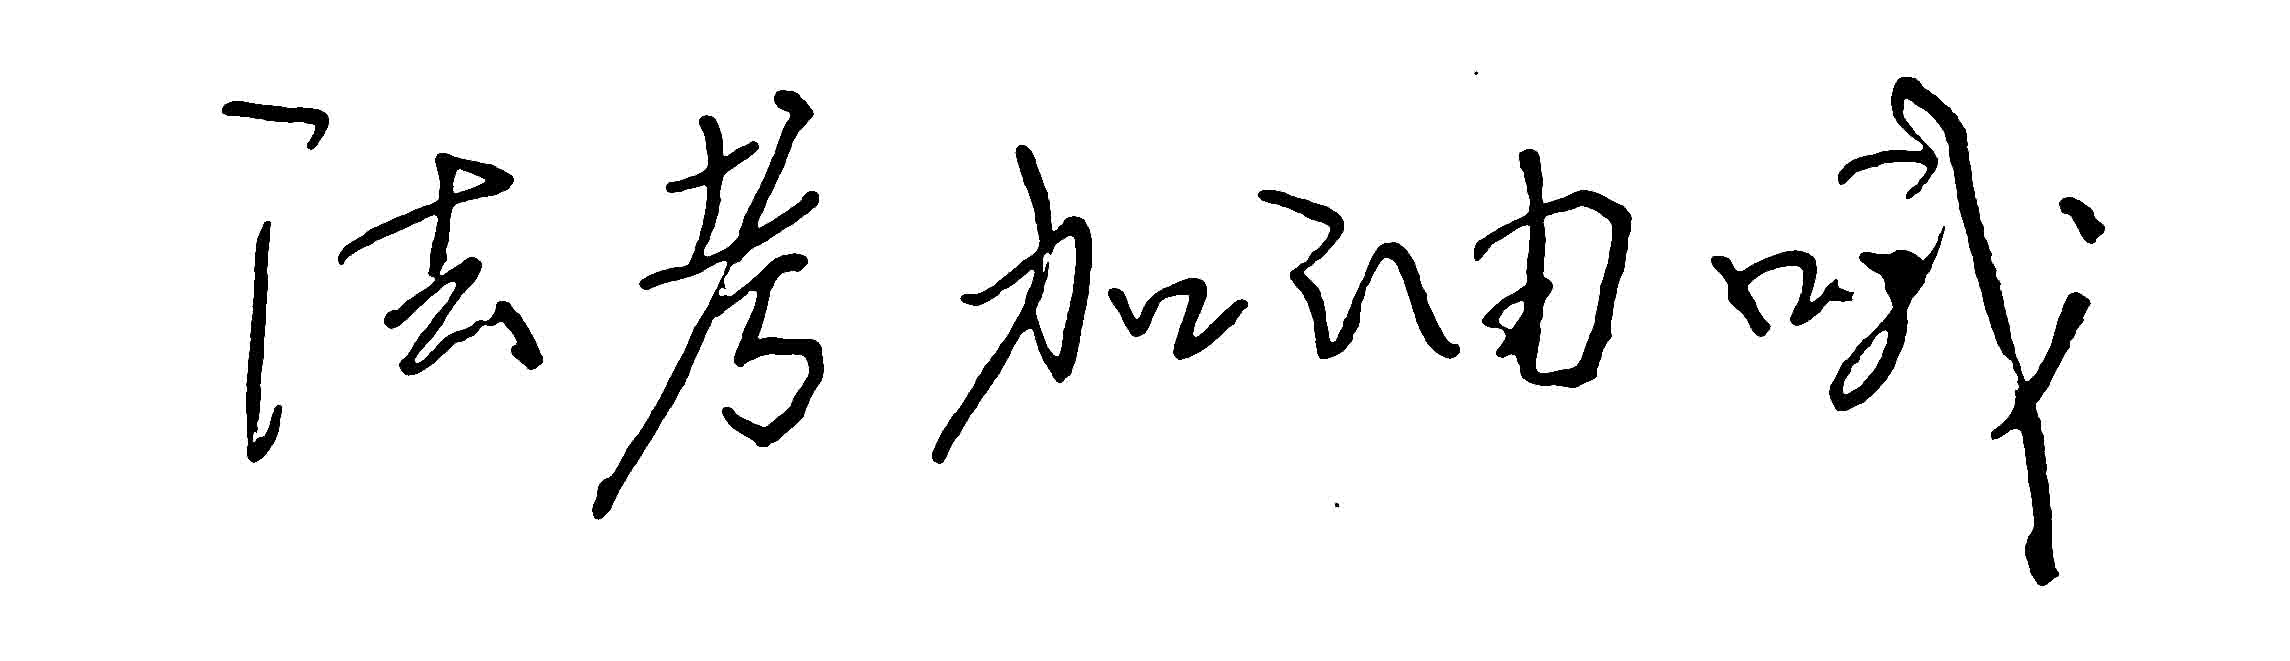 法考加油哦